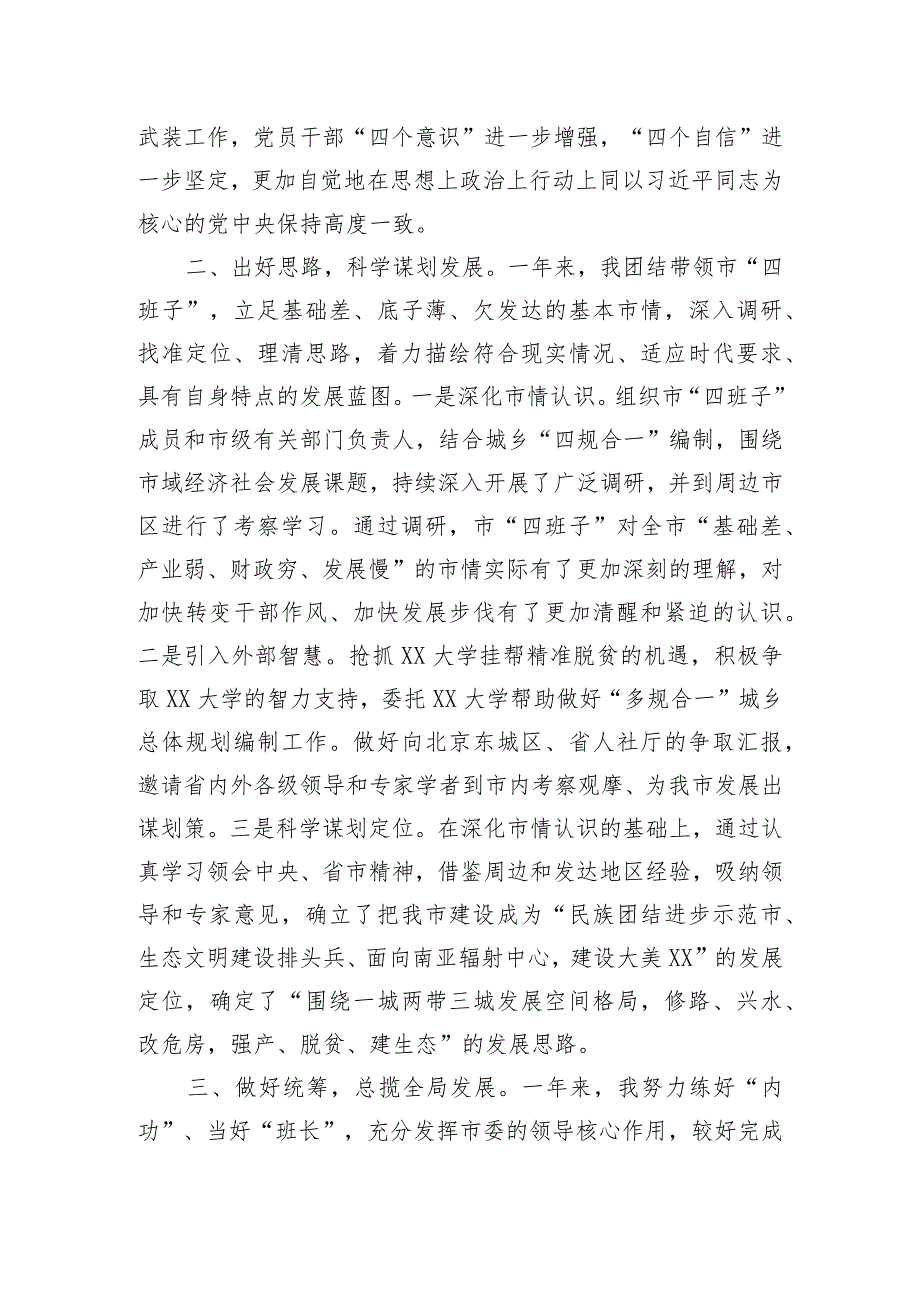 武装工作，党员干部“四个意识”进一步增强，“四个自信”进
一步坚定，更加自觉地在思想上政治上行动上同以习近平同志为
核心的党中央保持高度一致。
二、出好思路，科学谋划发展。一年来，我团结带领市“四
班子”，立足基础差、底子薄、欠发达的基本市情，深入调研、
找准定位、理清思路，着力描绘符合现实情况、适应时代要求、
具有自身特点的发展蓝图。一是深化市情认识。组织市“四班子”
成员和市级有关部门负责人，结合城乡“四规合一”编制，围绕
市域经济社会发展课题，持续深入开展了广泛调研，并到周边市
区进行了考察学习。通过调研，市“四班子”对全市“基础差、
产业弱、财政穷、发展慢”的市情实际有了更加深刻的理解，对
加快转变干部作风、加快发展步伐有了更加清醒和紧迫的认识。
二是引入外部智慧。抢抓 XX 大学挂帮精准脱贫的机遇，积极争
取 XX 大学的智力支持，委托 XX 大学帮助做好“多规合一”城乡
总体规划编制工作。做好向北京东城区、省人社厅的争取汇报，
邀请省内外各级领导和专家学者到市内考察观摩、为我市发展出
谋划策。三是科学谋划定位。在深化市情认识的基础上，通过认
真学习领会中央、省市精神，借鉴周边和发达地区经验，吸纳领
导和专家意见，确立了把我市建设成为“民族团结进步示范市、
生态文明建设排头兵、面向南亚辐射中心，建设大美 XX”的发展
定位，确定了“围绕一城两带三城发展空间格局，修路、兴水、
改危房，强产、脱贫、建生态”的发展思路。
三、做好统筹，总揽全局发展。一年来，我努力练好“内
功”、当好“班长”，充分发挥市委的领导核心作用，较好完成